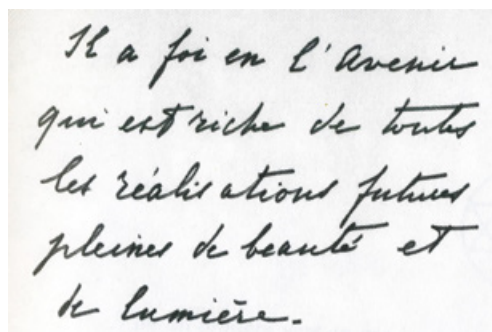 Il a foi en l'Avenir
qui est riche de toutes
les réalisations futures
pleines de beauté et
de lumière.